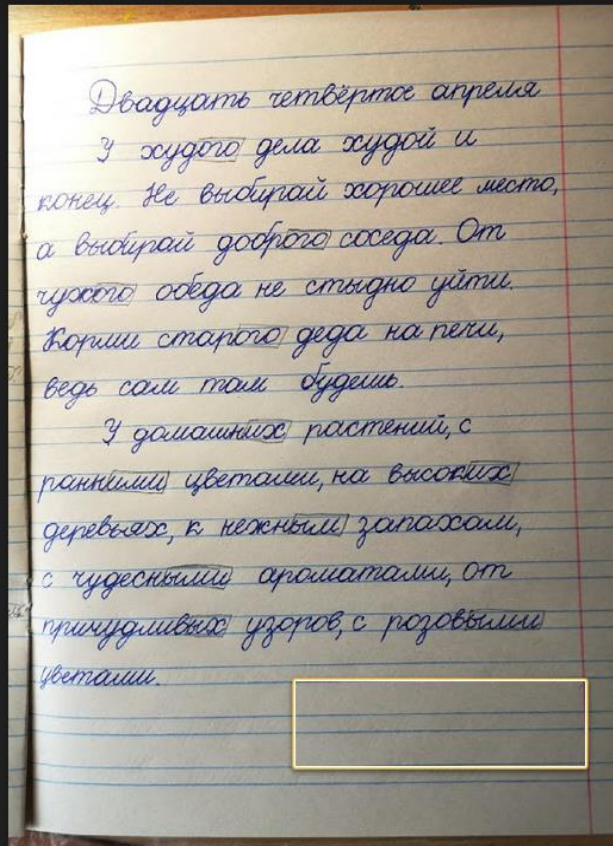 Двадцать четвёртое апреля
У худого дела худой и
конец. Не выбирай хорошее место,
а выбирай доброго соседа. От
чужого обеда не стыдно уйти.
Корми старого деда на печи,
ведь сам там будешь.
У домашних растений, с
ранними цветами, на высоких
деревьях, к нежным запахам,
с чудесными ароматами, от
причудливых узоров, с розовыми
цветами.